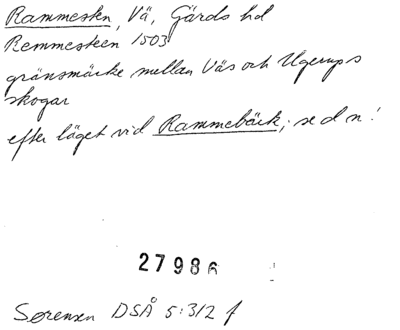 Rammesten, Vä, Gärds hd
Remmesteen 1503
gränsmärke mellan Väs och Ugerups
skogar
efter läget vid Rammebäck; se d n!
27986
Sørensen DSÅ 5:312 f